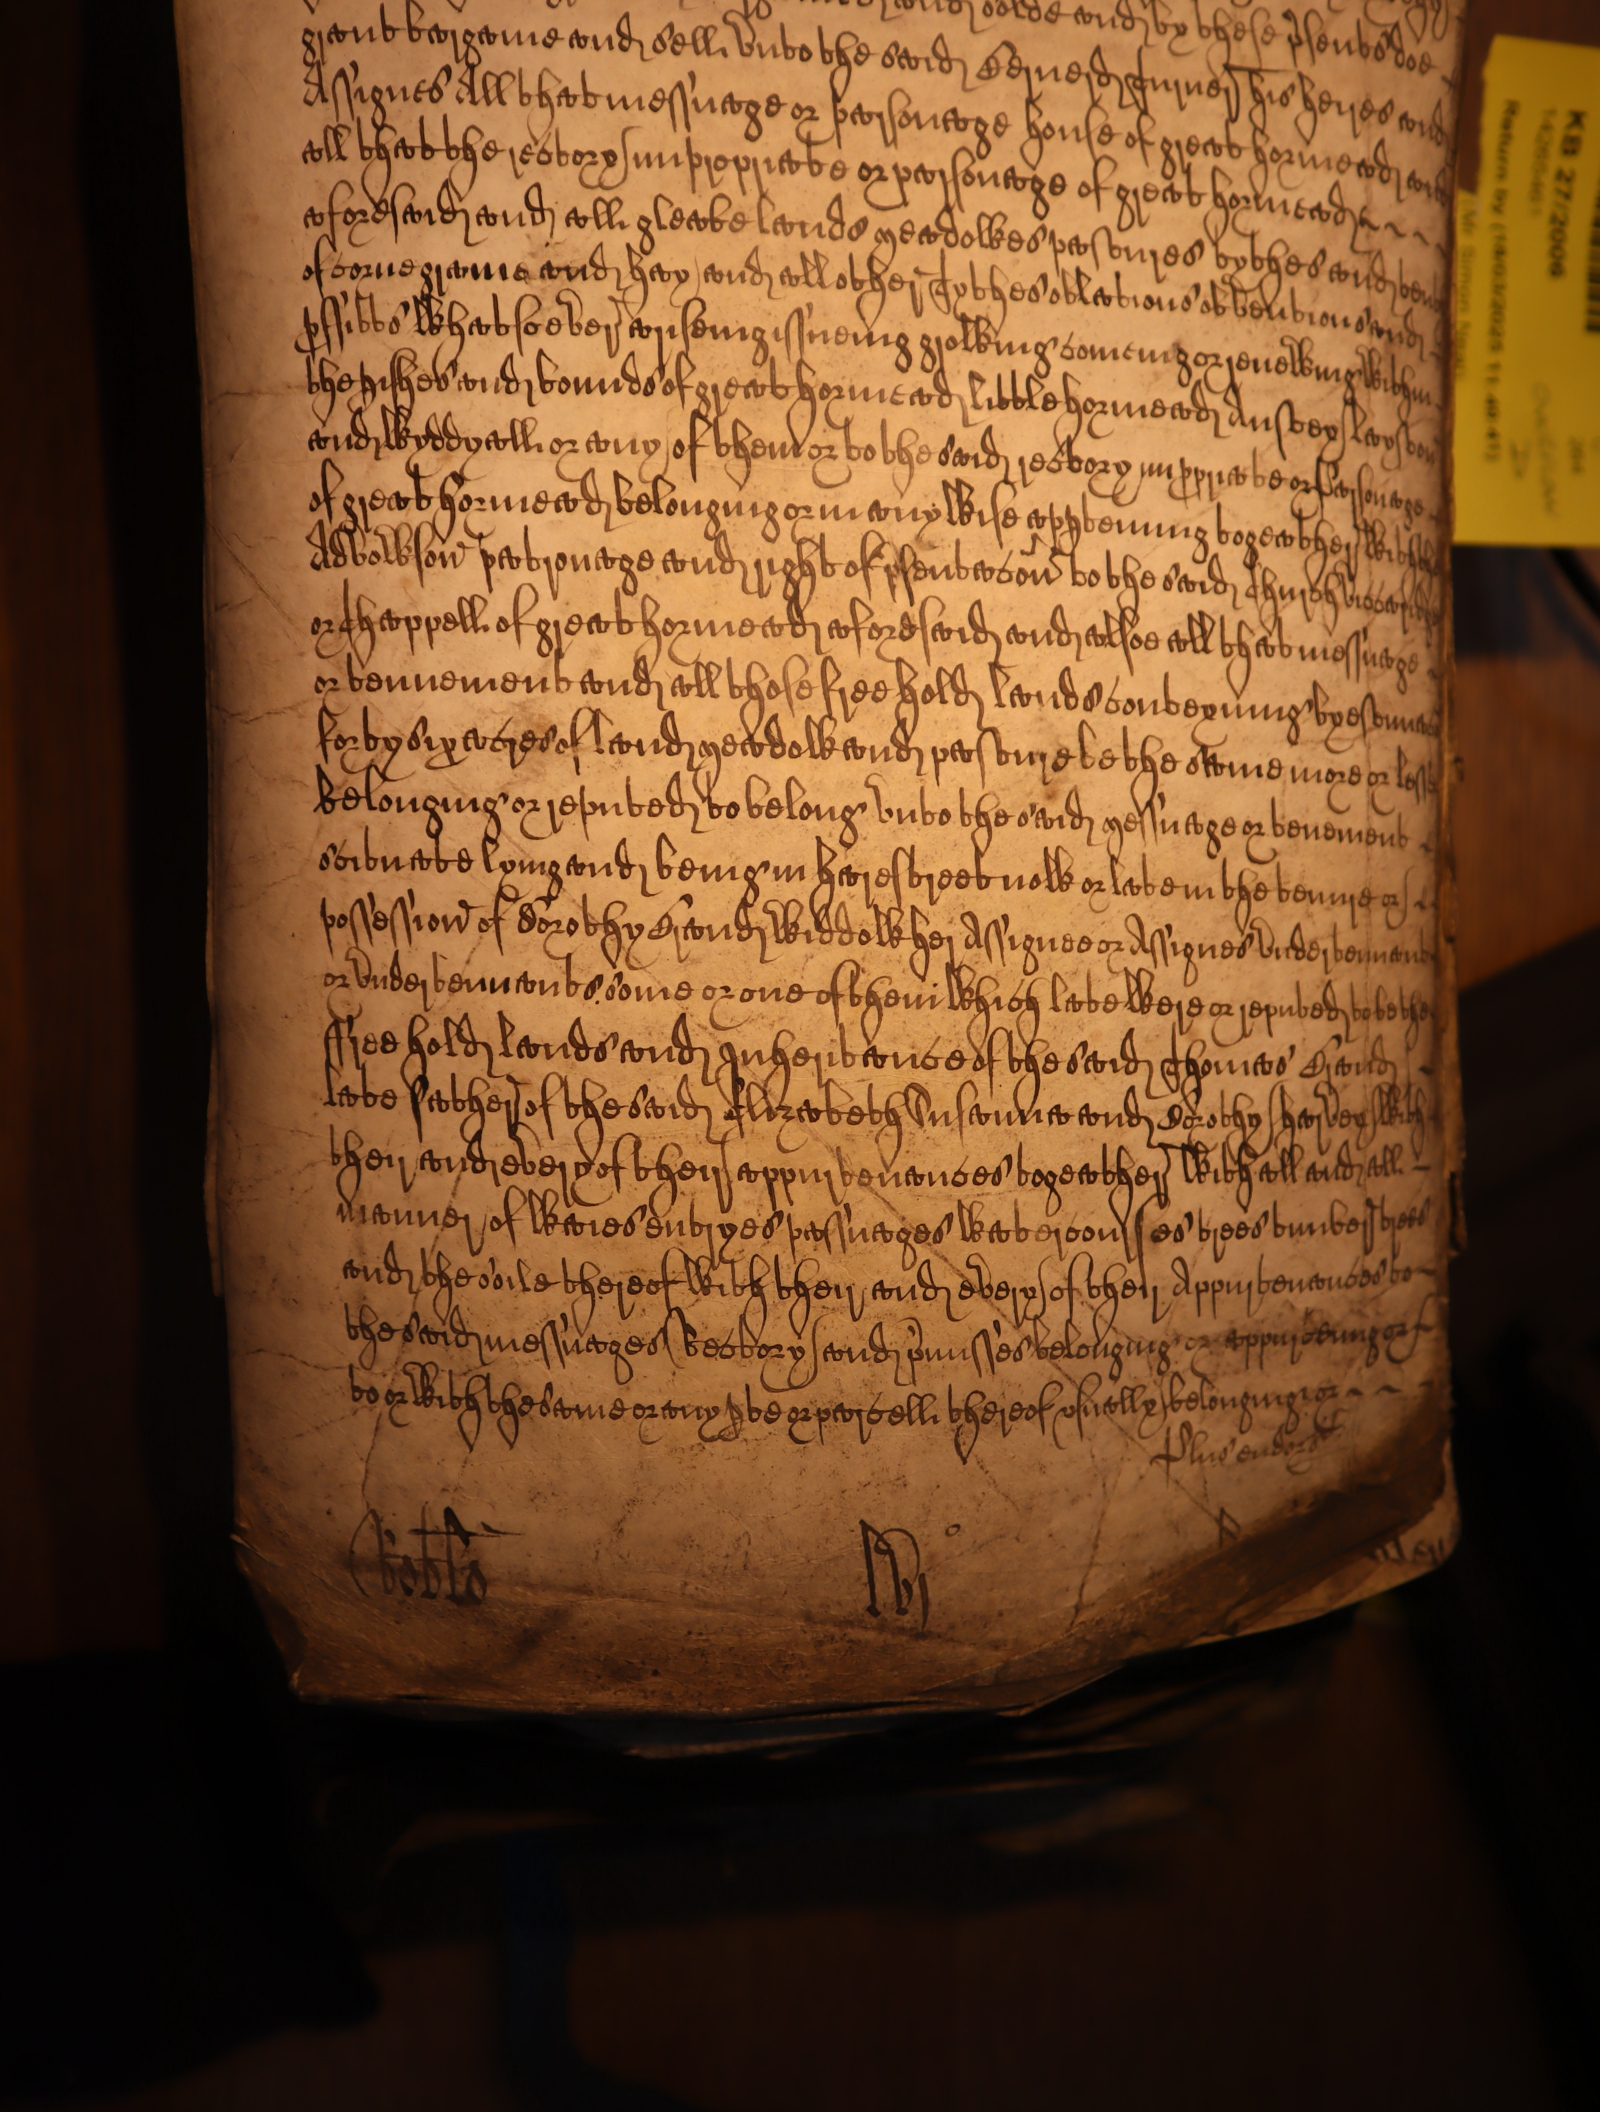 and solde and by these p̃sents doe
graunt bargaine and sell vnto the said Bernerd Turner his heires and
Assignes All that messuage or parsonage house of great hormead and
all that the rectory impropriate or parsonage of great hormead
aforesaid and all gleabe lands meadowes pastures tythes and tent
of corne graine and hay and all other Tythes oblations obventions and
pffitts whatsoever ariseing issueing growing comeing or renewing within
the pishes and bounds of great hormead little hormead Anstey Layston
and Wyddyall or any of them or to the said rectory imppriate or Parsonage
of great hormead belonging or in any wise apptening togeather with the
Advowson patronage and right of p̃sentac̃on to the said Church viccaridge
or Chappell of great hormead aforesaid and alsoe all that messuage
or tennement and all those free hold lands conteyning by estimac
forty six acres of land meadow and pasture be the same more or lesse
belonging or reputed to belong vnto the said messuage or tenement
scituate lying and being in hare street now or late in the tenure or
possession of Dorothy Brand widdow her Assignee or Assignes vndertennant
or vndertennants some or one of them which late were or reputed to be the
ffree hold lands and Inheritance of the said Thomas Brand
late father of the said Elizabeth Susanna and Dorothy harvey with
their and every of their appurtenances togeather with all and all
manner of waies entryes passuages watercourses trees timber trees
and the soile thereof with their and every of their Appurtenances to
the said messuages Rectory and p̃misses belonging or appurteining or
to or with the same or any pte or parcell thereof vsually belonging or
Plus endors
KB 27/2006
Return by (14/03/2025 11:49:41)